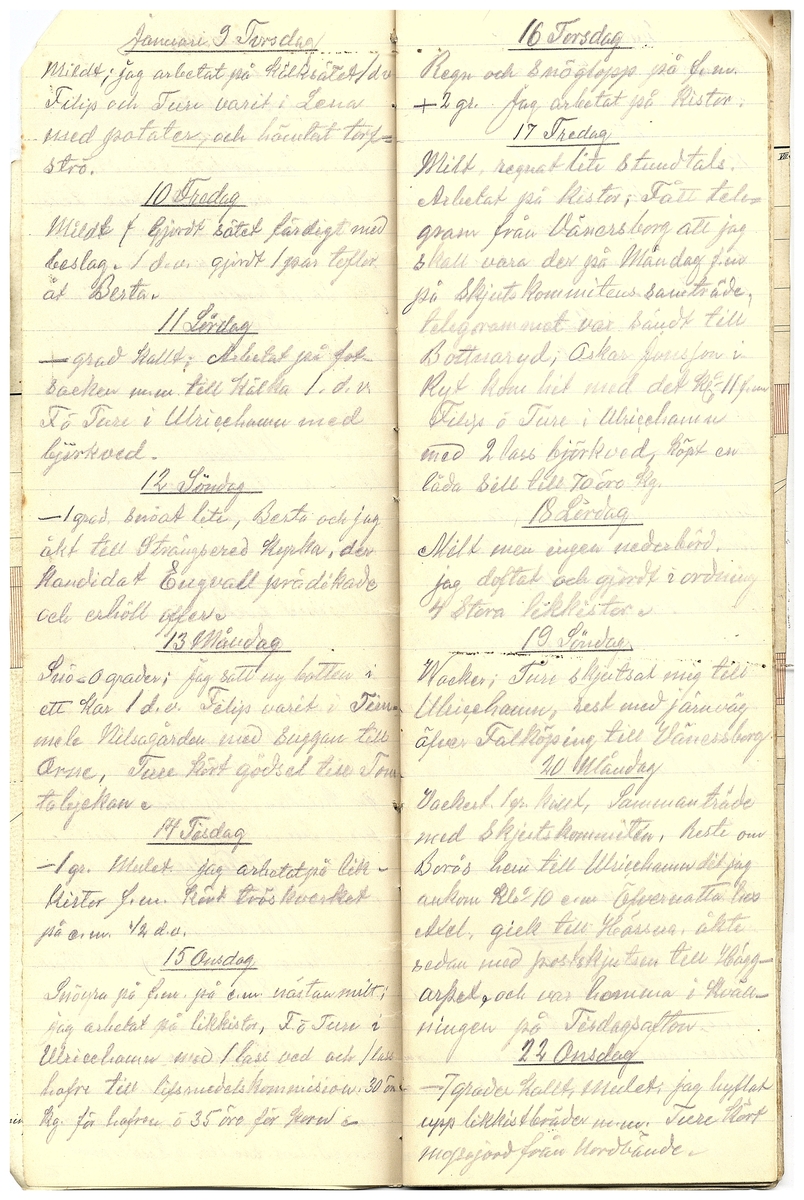 Januari 9 Torsdag
Mildt; jag arbetat på Kälksätet 1 d.v
Filip och Ture varit i Lena
med potater, och hämtat torf=
strö.
10 Fredag
Mildt gjordt sätet färdigt med
beslag. 1 d.v. gjordt 1 par tofflor
åt Berta.
11 Lördag
— grad Kallt; Arbetat på fot-
sacken m.m till Kälka 1. d. v.
F ö Ture i Ulricehamn med
björkved.
12 Söndag
—1 grad. snöat lite, Berta och jag
åkt till Strängsered Kyrka, der
Kandidat Engvall prädikade
och erhöll offer.
13 Måndag
Snö=0 grader; jag satt ny botten i
ett Kar 1 d.v. Filip varit i
Nilsagården med suggan till
Orne, Ture Kört gödsel till Tom
talyckan.
14 Tisdag
—1 gr. Mulet. jag arbetat på lik-
Kistor f.m. Kört tröskverket
på e.m. 1/2 d.v.
15 Onsdag
Snöyra på f.m. på e.m. nästan milt;
jag arbetat på likkistor, F ö Ture i
Ulricehamn med 1 lass ved och 1 lass
hafre till lifsmedelskommision. 30 öre
Kg. för hafren ö 35 öre för Korn
16 Torsdag
Regn och snöglopp på f.m.
+2 gr. Jag arbetat på Kistor.
17 Fredag
Milt, regnat lite stundtals.
Arbetat på Kistor; Fått tele=
gram från Vänersborg att jag
skall vara der på Måndag f.m
på Skjutskommitens samträde,
telegrammet var sändt till
Bottnaryd; Oskar Jonsson i
Ryt kom hit med det Kl. 11 f.m
Filip ö Ture i Ulricehamn
med 2 lass björkved, Köpt en
låda sill till 70 öre Kg.
18 Lördag
Milt men ingen nederbörd.
jag doftat och gjordt i ordning
4 Stora likkistor.
19 Söndag
Wacker; Ture skjutsat mig till
Ulricehamn, rest med järnväg
öfver Falköping till Vänersborg
20 Måndag
Vackert, 1 gr. Kallt, Sammanträde
med Skjutskommitten, Reste om
Borås hem till Ulricehamn dit jag
ankom Kl. 10 e.m Öfvernatta hos
Axel, gick till Hössna, åkte
sedan med postskjutsen till Hägg-
arpet, och var hemma i Kväll-
ningen på Tisdagsafton
22 Onsdag
—7 grader Kallt, Mulet, jag hyflat
upp likkistbräder m.m. Ture Kört
mossjord från Nordbände.